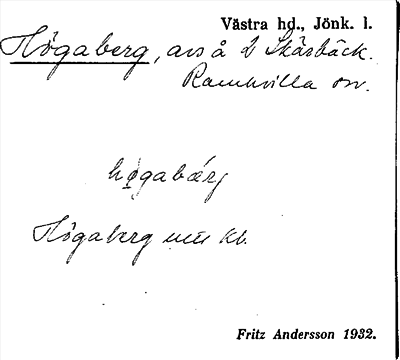 Västra hd., Jönk. l.
Högaberg, avs å 2 Skäsbäck.
Ramkvilla sn.
högabærg
Högaberg mtl kb.
Fritz Andersson 1932.